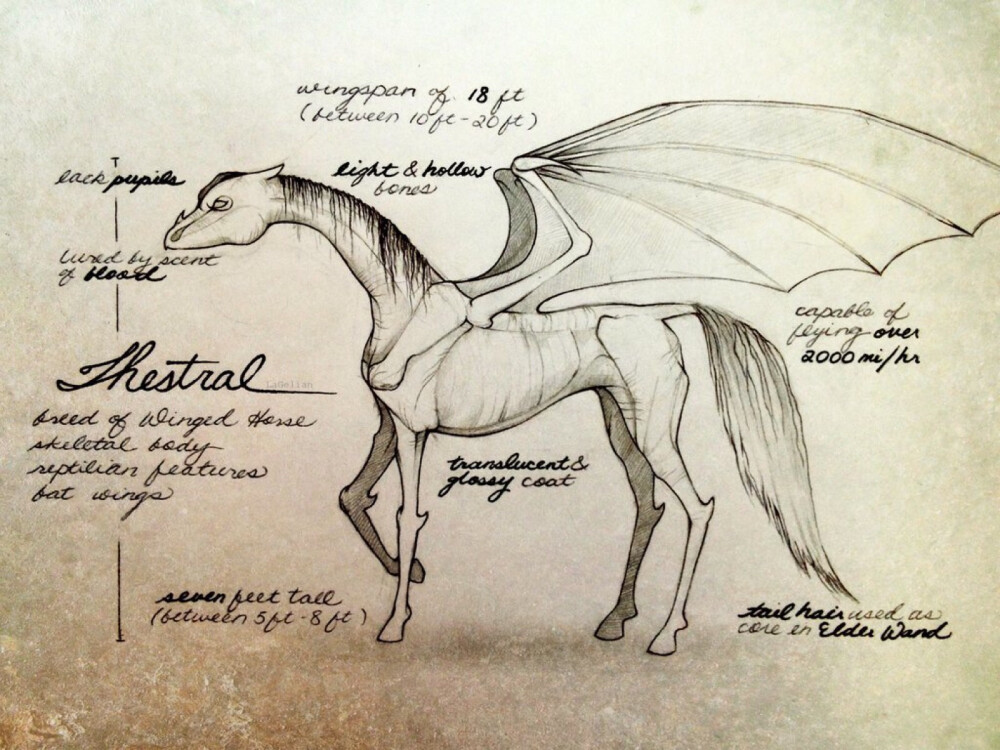 wingspan of 18 ft
(between 10ft-20ft)
lack pupils
light & hollow
bones
lured by scent
of blood
capable of
flying over
2000 mi/hr
Thestral
LaGelian
breed of Winged Horse
skeletal body
reptilian features
bat wings
translucent &
glossy coat
seven feet tall
(between 5ft-8ft)
tail hair used as
core in Elder Wand